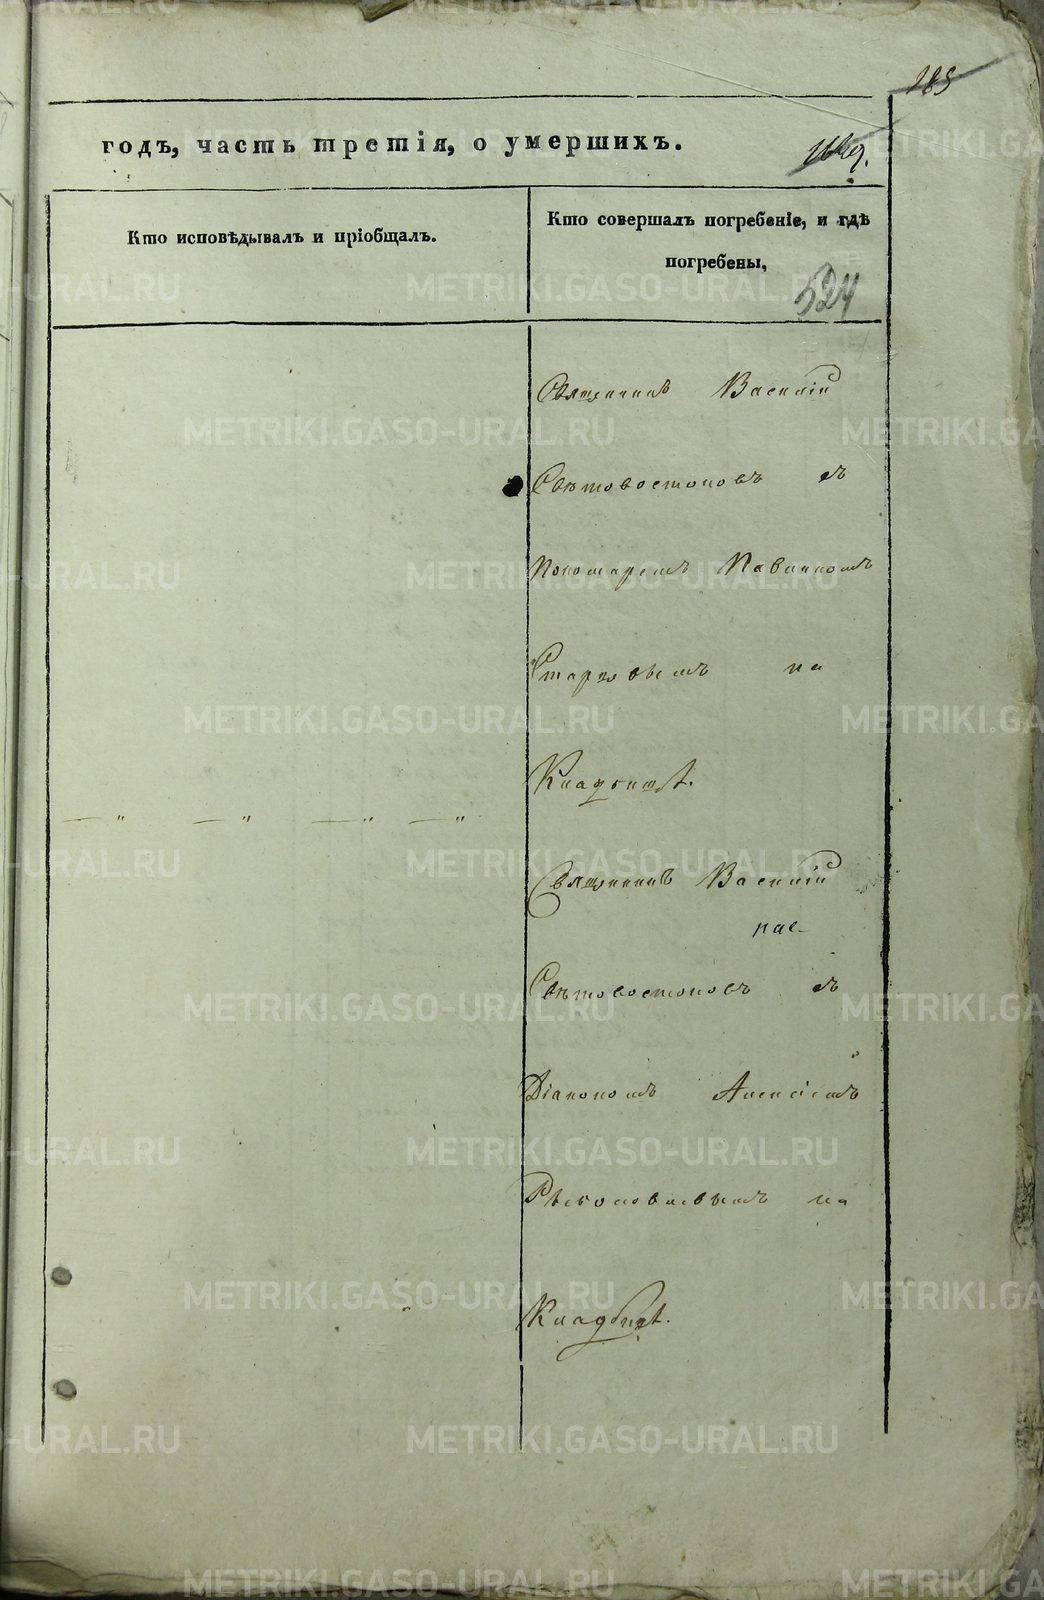 185
годъ, часть третія, о умершихъ.
Кто исповѣдывалъ и пріобщалъ.
Кто совершалъ погребеніе, и гдѣ
погребены,
524
Священникъ Василій
Свѣтовостоковъ съ
Пономаремъ Павиномъ
Старковымъ на
Кладбищѣ.
— " — " — " — "
Священникъ Василій
Свѣтовостоковъ съ
Діакономъ Алексіемъ
на
Кладбищѣ.
METRIKI.GASO-URAL.RU